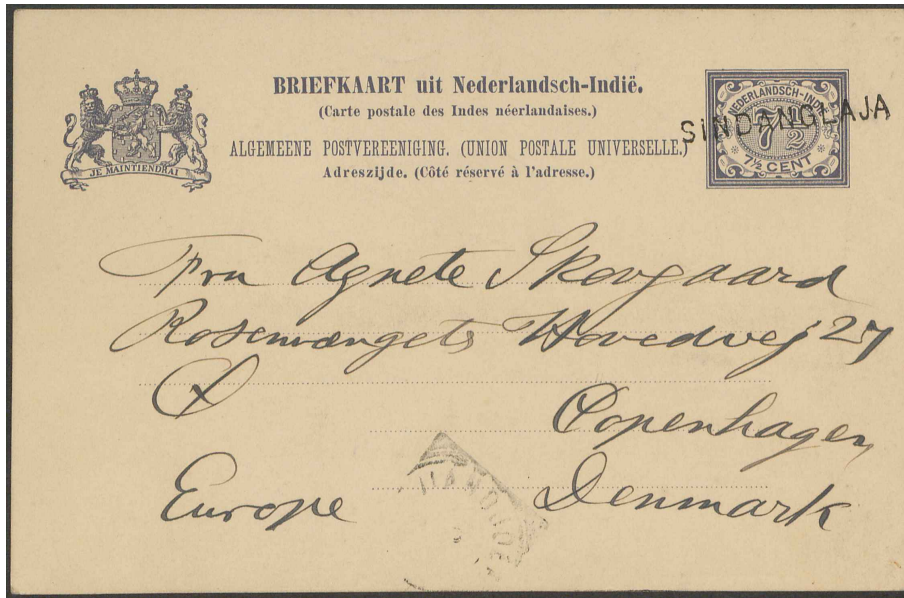 BRIEFKAART uit Nederlandsch-Indië.
(Carte postale des Indes néerlandaises.)
ALGEMEENE POSTVEREENIGING. (UNION POSTALE UNIVERSELLE.)
Adreszijde. (Côté réservé à l'adresse.)
JE MAINTIENDRAI
NEDERLANDSCH-INDIË
7 1/2
7½ CENT
SINDANGLAJA
Fru Agnete Skovgaard
Rosenvængets Hovedvej 27
Ø
Copenhagen
Europe Denmark